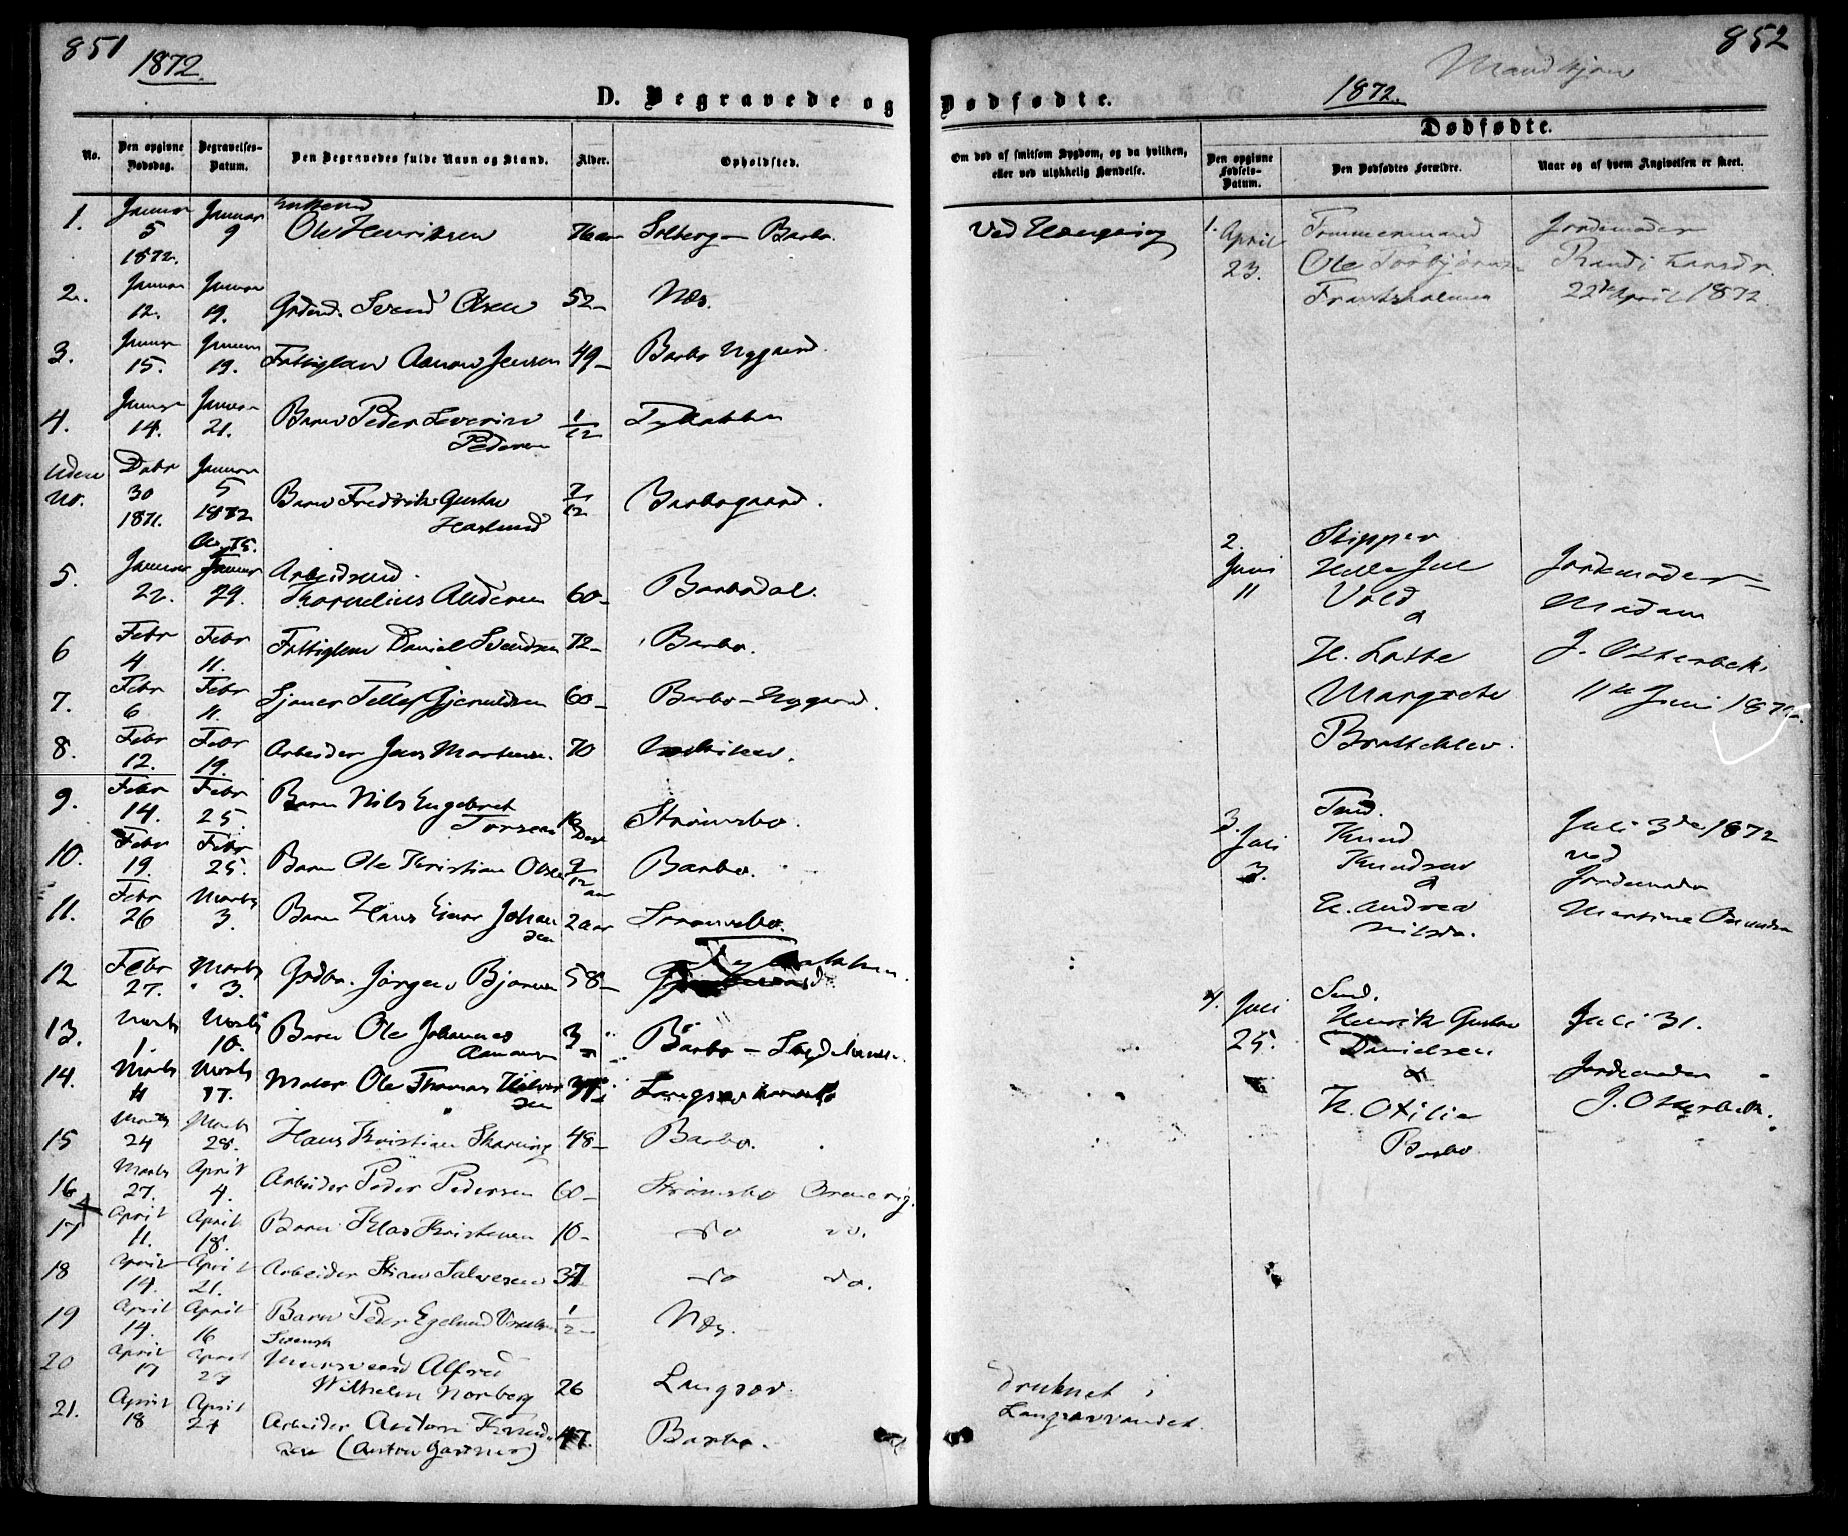 851
1872.
D. Begravede og
No.
Den opgivne Dødsdag.
Begravelses-Datum.
Den Begravedes fulde Navn og Stand.
Alder.
Opholdsted.
1. Januar 5 1872. Januar 9 Ole Henriksen 76 aar Solberg - Barbo.
2. Januar 12. Januar 19. Grdmd. Svend Olsen 52 - Næs.
3. Januar 15. Januar 19. Fattiglem Aanon Jensen 49 - Barbo Nygaard.
4. Januar 14. Januar 21. Barn Peder Severin Pedersen 1/12
Uden No. Debr 30 1871. Januar 5 1872 Barn Fredrik Gustav Haslund 7/12 Barbogaard.
5. Januar 22. Januar 29. Arbeidsmd. Andersen 60 - Barbodal.
6 Febr 4. Febr 11. Fattiglem Daniel Svendsen 72 - Barbo.
7. Febr 6 Febr 11. Tellef Gjeruldsen 60 - Barbo - Nygaard.
8. Febr 12. Febr 19. Arbeider Jens Mortensen. 70
9. Febr 14. Febr 25. Barn Nils Engebret 16 Dage Strømsbo.
10. Febr 19. Febr 25. Barn Ole Kristian Olsen 9/12 aar Barbo.
11. Febr 26 Marts 3. Barn Hans Einar Johansen 2 aar Strømsbo.
12 Febr 27. Marts 3. Grdbr. Jørgen Bjørnsen 58 -
13. Marts 1. Marts 10. Barn Ole Johannes Aanonsen 3 Barbo -
14. Marts 11 Marts 17. Ole Thomas
15 Marts 24 Marts 28. Hans Kristian 48 - Barbo.
16 Marts 27. April 4. Arbeider Peder Pedersen 60 - Strømsbo
17 April 11. April 18. Barn Klas Kristensen 10 - do do.
18 April 14. April 21. Arbeider Stian Salvesen 37 do do.
19 April 14. April 16 Barn Peder Egelund 1/2 - Næs.
20 April 17 April Svensk Alfred Wilhelm Norberg 26 Langsæv.
21. April 18 April 24 Arbeider Anton Knudsen (Anton Gartner) 47. Barbo.
852
Mandkjøn
1872.
Dødfødte.
Dødfødte.
Om død af smitsom Sygdom, og da hvilken, eller ved ulykkelig Hændelse.
Den opgivne Fødsels-Datum.
Den Dødfødtes Forældre.
Naar og af hvem Angivelsen er skeet.
Ved Hængning
1. April 23. Tømmermand Ole Torbjørnsen
Jordemoder Randi Larsdr. 22de April 1872.
2. Juni 11 Skipper Vold & H. Lotte Margrethe Bratteklev.
Jordemoder Madam J. Otterbek. 11te Juni 1872.
3. Juli 3. Tmd. Knud Knudsen & H. Andrea Nilsdr.
Juli 3de 1872 ved Jordemoder Martine
4. Juli 25. Smd. Henrik Gustav Danielsen & H. Otilie Barbo
Juli 31. Jordemoder J. Otterbek.
druknet i Langsævvandet.